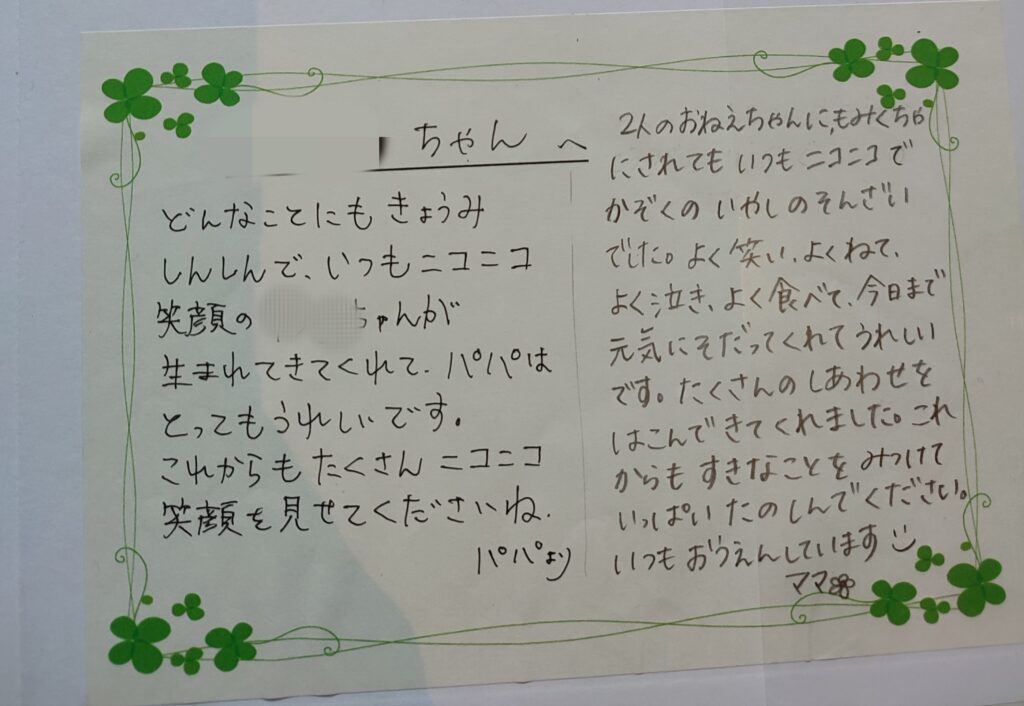 ちゃんへ
どんなことにもきょうみ
しんしんで、いつもニコニコ
笑顔の ちゃんが
生まれてきてくれて、パパは
とってもうれしいです。
これからもたくさんニコニコ
笑顔を見せてくださいね。
パパより
2人のおねえちゃんに、もみくちゃ
にされてもいつもニコニコで
かぞくのいやしのそんざい
でした。よく笑い、よくねて、
よく泣き、よく食べて、今日まで
元気にそだってくれてうれしい
です。たくさんのしあわせを
はこんできてくれました。これ
からもすきなことをみつけて
いっぱいたのしんでください。
いつもおうえんしています
ママ